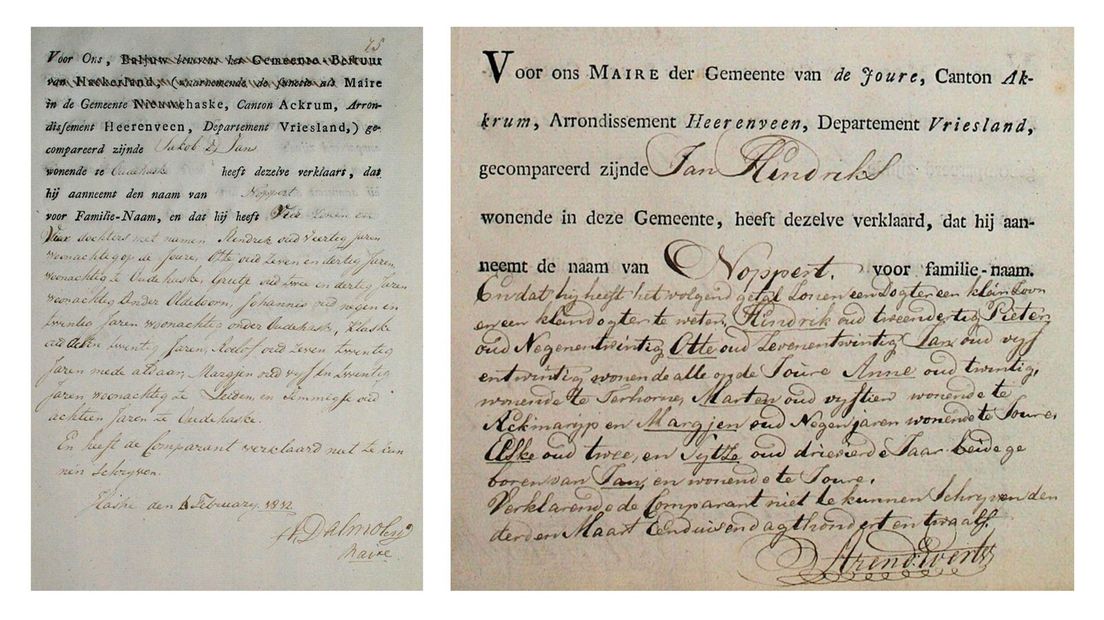 75
Voor Ons, Baljuw benevens het Gemeente-Bestuur
van Haskerland, (waarnemende de functie als Maire
in de Gemeente Nieuwehaske, Canton Ackrum, Arron-
dissement Heerenveen, Departement Vriesland,) ge-
compareerd zijnde Jakob D Jans
wonende te Oudehaske heeft dezelve verklaart, dat
hij aanneemt den naam van Noppert
voor Familie-Naam, en dat hij heeft Vier Zonen en
Vier dochters met namen Hendrik oud Veertig Jaren
woonachtig op de Joure, Otte oud Zeven en dertig Jaren
woonachtig te Oudehaske, Grietje oud twee en dertig Jaren
woonachtig onder Oldeboorn, Johannes oud negen en
twintig Jaren woonachtig onder Oudehaske, Klaske
oud twintig Jaren, Roelof oud Zeven twentig
Jaren mede aldaar, Margjen oud vijf en twentig
Jaren woonachtig te Leiden, en Jemmigje oud
achtien Jaren te Oudehaske.
En heeft de Comparant verklaard niet te kun
nen Schryven.
Haske den Februarij 1812
Dalmolen
Maire
Voor ons MAIRE der Gemeente van de Joure, Canton Ak-
krum, Arrondissement Heerenveen, Departement Vriesland,
gecompareerd zijnde Jan Hendriks
wonende in deze Gemeente, heeft dezelve verklaard, dat hij aan-
neemt de naam van Noppert. voor familie-naam.
En dat hij heeft het volgend getal Zonen een Dogter een klein Zoon
en een kleindogter te weten, Hindrik oud tweendertig Pieter
oud Negenentwintig Otte oud Zevenentwintig Jan oud vyf
entwintig wonende alle op de Joure Anne oud twintig,
wonende te Terhorne, Marten oud vyftien wonende te
Ackmaryp en Margjen oud Negen jaren wonende te Joure.
Elske oud twee, en Sytze oud drievierde Jaar beide ge
boren van Jan, en wonende te Joure.
Verklarende de Comparant niet te kunnen Schryven den
derden Maart Eenduisend agthondert en twaalf.
Strend Everts